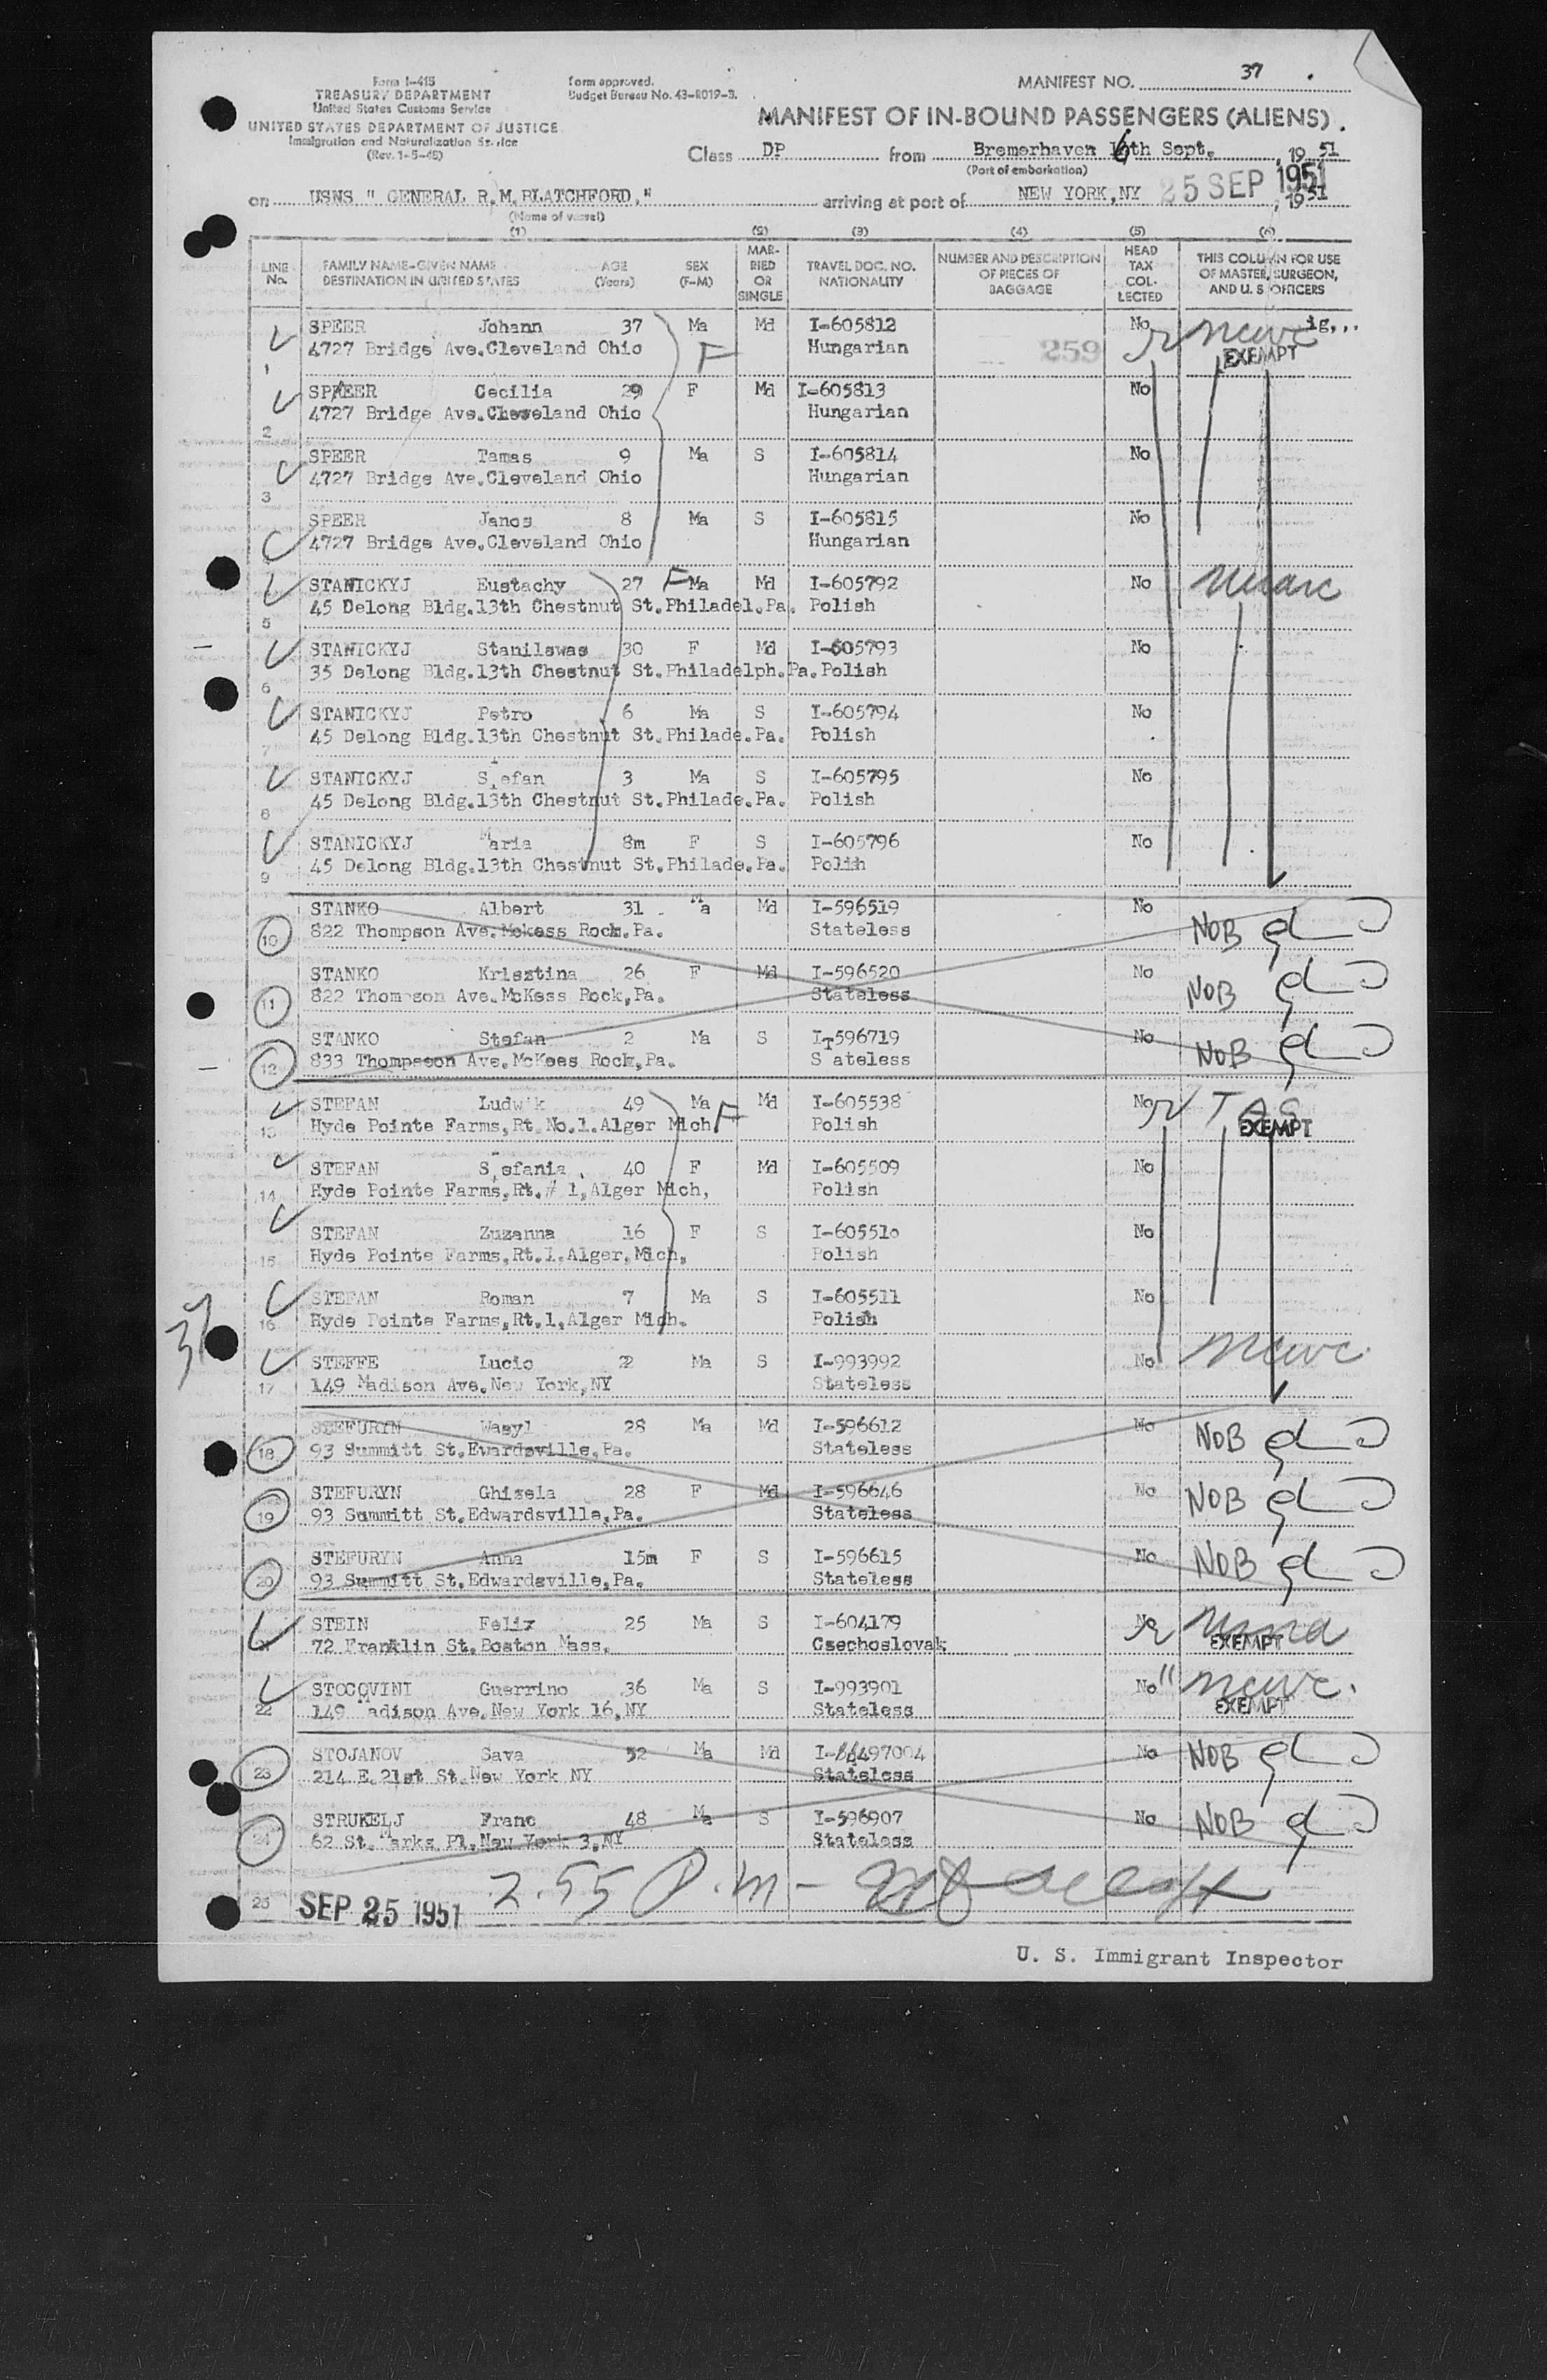 Form I-415
TREASURY DEPARTMENT
United States Customs Service
UNITED STATES DEPARTMENT OF JUSTICE
Immigration and Naturalization Service
(Rev. 1-5-48)
Form approved.
Budget Bureau No. 43-R019-3.
MANIFEST NO. 37
MANIFEST OF IN-BOUND PASSENGERS (ALIENS)
Class DP from Bremerhaven 16th Sept. , 19 51
(Port of embarkation)
on USNS " GENERAL R.M.BLATCHFORD." arriving at port of NEW YORK,NY 25 SEP 1951 , 19 51
(Name of vessel)
(1) (2) (3) (4) (5) (6)
LINE No. FAMILY NAME-GIVEN NAME DESTINATION IN UNITED STATES AGE (Years) SEX (F-M) MARRIED OR SINGLE TRAVEL DOC. NO. NATIONALITY NUMBER AND DESCRIPTION OF PIECES OF BAGGAGE HEAD TAX COLLECTED THIS COLUMN FOR USE OF MASTER, SURGEON, AND U. S. OFFICERS
SPEER Johann 37 Ma Md I-605812 No
1 4727 Bridge Ave.Cleveland Ohio F Hungarian 259 EXEMPT
SPEER Cecilia 29 F Md I-605813 No
2 4727 Bridge Ave.Cleveland Ohio Hungarian
SPEER Tamas 9 Ma S I-605814 No
3 4727 Bridge Ave.Cleveland Ohio Hungarian
SPEER Janos 8 Ma S I-605815 No
4727 Bridge Ave.Cleveland Ohio Hungarian
STANICKYJ Eustachy 27 F Ma Md I-605792 No
5 45 Delong Bldg.13th Chestnut St.Philadel.Pa. Polish
STANICKYJ Stanilswas 30 F Md I-605793 No
6 35 Delong Bldg.13th Chestnut St.Philadelph.Pa.Polish
STANICKYJ Petro 6 Ma S I-605794 No
7 45 Delong Bldg.13th Chestnut St.Philade.Pa. Polish
STANICKYJ Stefan 3 Ma S I-605795 No
8 45 Delong Bldg.13th Chestnut St.Philade.Pa. Polish
STANICKYJ Maria 8m F S I-605796 No
9 45 Delong Bldg.13th Chestnut St.Philade.Pa. Polih
STANKO Albert 31 Ma Md I-596519 No NOB
10 822 Thompson Ave.Mckess Rock.Pa. Stateless
STANKO Krisztina 26 F Md I-596520 No NOB
11 822 Thompson Ave.McKess Rock,Pa. Stateless
STANKO Stefan 2 Ma S I-596719 No NOB
12 833 Thompseon Ave.McKees Rock,Pa. Stateless
STEFAN Ludwik 49 Ma F Md I-605538 No
13 Hyde Pointe Farms,Rt No.1.Alger Mich Polish EXEMPT
STEFAN Stefania 40 F Md I-605509 No
14 Hyde Pointe Farms,Rt.# 1,Alger Mich, Polish
STEFAN Zuzanna 16 F S I-605510 No
15 Hyde Pointe Farms,Rt.1.Alger,Mich, Polish
STEFAN Roman 7 Ma S I-605511 No
16 Hyde Pointe Farms,Rt.1,Alger Mich. Polish
STEFFE Lucio 22 Ma S I-993992 No
17 149 Madison Ave.New York,NY Stateless
STEFURYN Wasyl 28 Ma Md I-596612 No NOB
18 93 Summitt St.Ewardsville,Pa. Stateless
STEFURYN Ghizela 28 F Md I-596646 No NOB
19 93 Summitt St.Edwardsville,Pa. Stateless
STEFURYN Anna 15m F S I-596615 No NOB
20 93 Summitt St.Edwardsville,Pa. Stateless
STEIN Felix 25 Ma S I-604179
72 Franklin St.Boston Mass. Czechoslovak EXEMPT
STOCOVINI Guerrino 36 Ma S I-993901 No "
22 149 Madison Ave.New York 16,NY Stateless EXEMPT
STOJANOV Sava 52 Ma Md I-497004 No NOB
23 214 E.21st St.New York NY Stateless
STRUKELJ Franc 48 Ma S I-596907 No NOB
24 62 St.Marks Pl.New York 3,NY Stateless
25 SEP 25 1951 2.55 P.m -
U. S. Immigrant Inspector